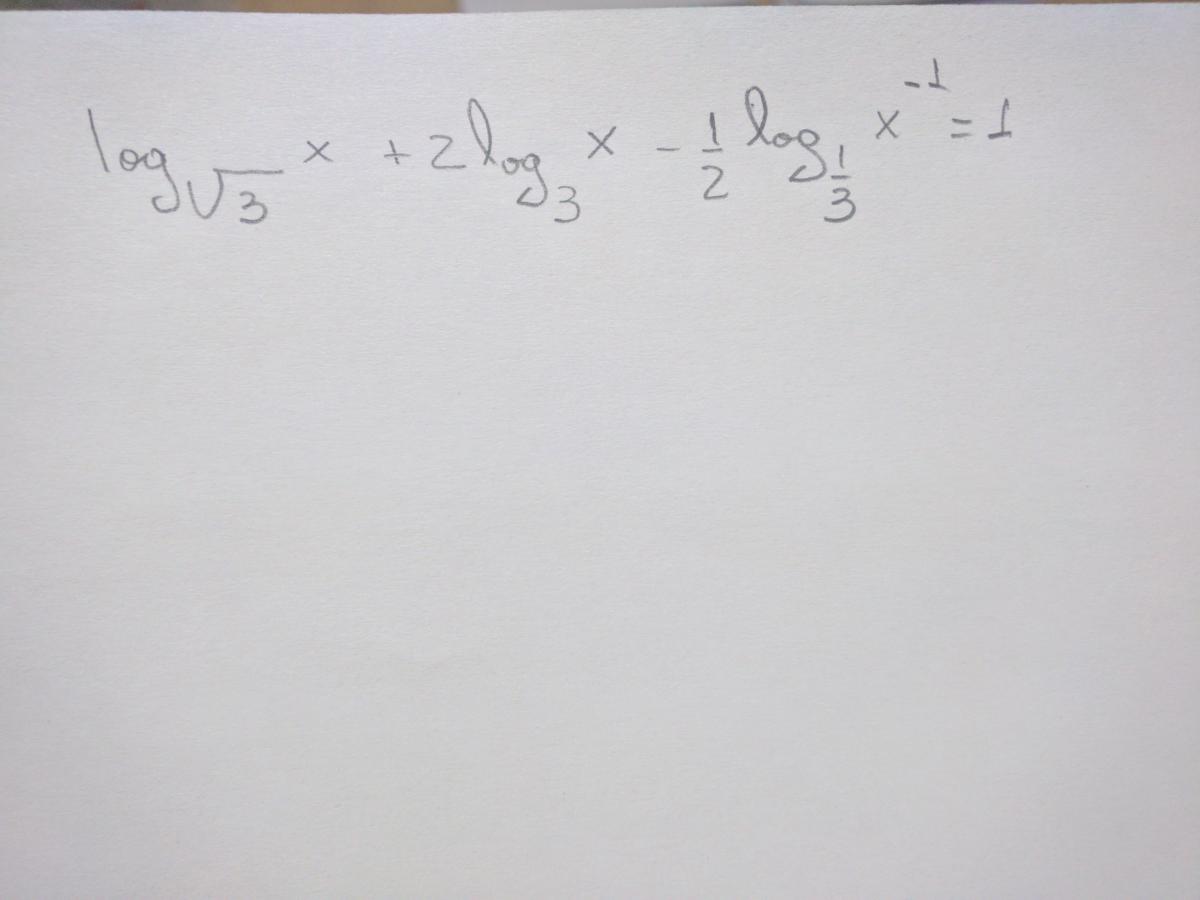 log_{√3} x + 2 log_3 x - \frac{1}{2} log_{\frac{1}{3}} x^{-1} = 1